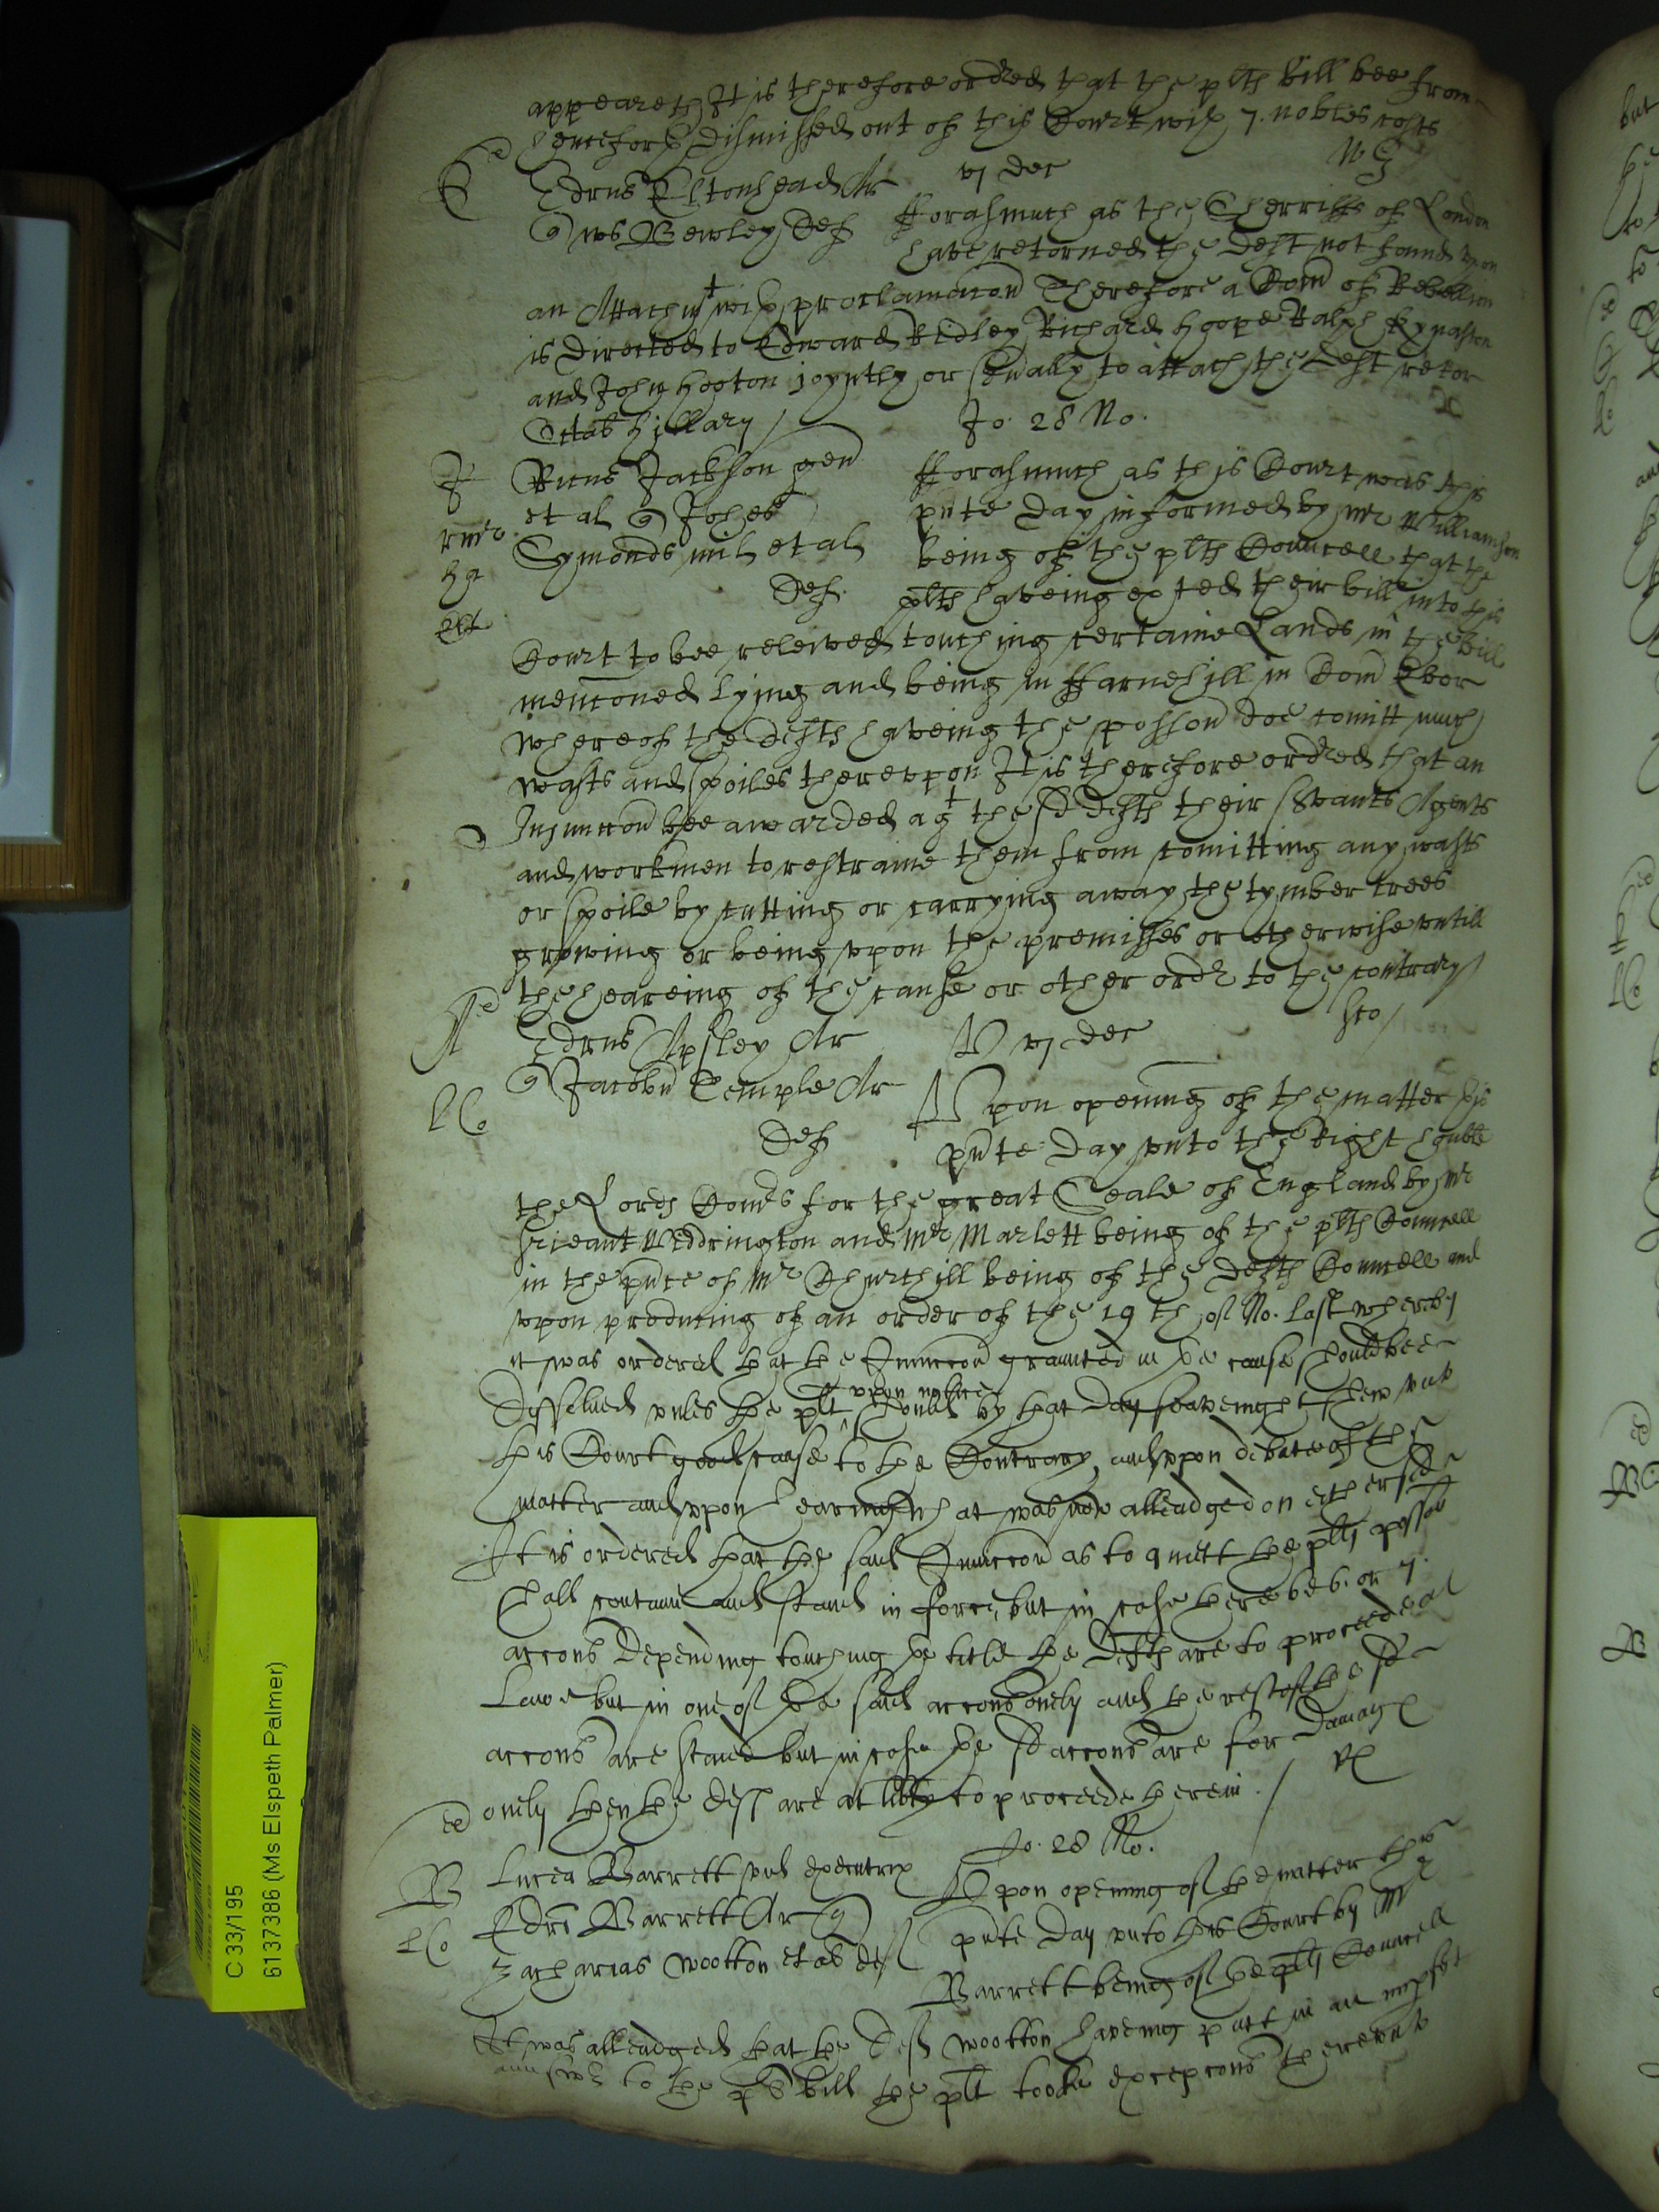 appeareth It is therefore ordred that the plts bill bee from
henceforth dismissed out of this Court with 7. nobles costs
WG
Edrus Eltonhead Ar vj dec
Bewley Def fforasmuch as the Sherriffs of London
have retorned the deft not found upon
an Attachmt with proclamacon Therefore a Com of Rebellion
is directed to Edward Ridley Richard Hoope Ralph Kynaston
and John Hooton joyntly or sevally to attach the deft retor
Octab hillary / Jo. 28 No.
Ricus Jackson gen fforasmuch as this Court was this
et al Johes pnte day informed by Mr Williamson
Symonds mil et al being of the plts Councell that the
Def. plts haveing exhted their bill into this
Court to bee releived touching certaine Lands in the bill
mencioned lying and being in ffarnehill in Com Ebor
whereof the defts haveing the posson doe comitt much
wasts and spoiles thereupon It is therefore ordred that an
Injunccon bee awarded agt the sd defts their servants Agents
and workmen to restraine them from comitting any wasts
or spoile by cutting or carrying away the tymber trees
growing or being upon the premisses or otherwise untill
the heareing of the cause or other ordr to the contrary /
Edrus Apsley Ar vj dec
Jacobu Temple Ar Upon opening of the matter this
Def pnte day unto the Right honble
the Lords Comrs for the great Seale of England by Mr
Serieant Widdrington and Mr Marlett being of the plts Councell
in the pnce of Mr Churchill being of the defts Councell and
upon producing of an order of the 19th of No. last whereby
it was ordered that the Injunccon graunted in the cause should bee
dissolued unles the plt upon notice should by that day seavenight shew unto
this Court good cause to the Contrary, and upon debate of the
matter and upon hearing what was alleadged on either side
It is ordered that the said Injunccon as to quiett the plts posson
shall continue and stand in force, but in case there be 6. or 7.
accons depending touching the title the defts are to proceede at
Lawe but in one of the said accons onely and the rest of the sd
accons are staied but in case the sd accons are for damage
onely then the defts are at libty to proceede therein. /
Lucea Barrett vid executrix Jo. 28 No.
Edri Barrett Ar Upon opening of the matter this
Zacharias Wootton et al def pnte day unto this Court by Mr
Barrett being of the plts Councell
It was alleadged that the deft Wootton haveing putt in an impfect
answer to the plts bill the plt tooke excepcons thereunto
C 33/195
6137386 (Ms Elspeth Palmer)